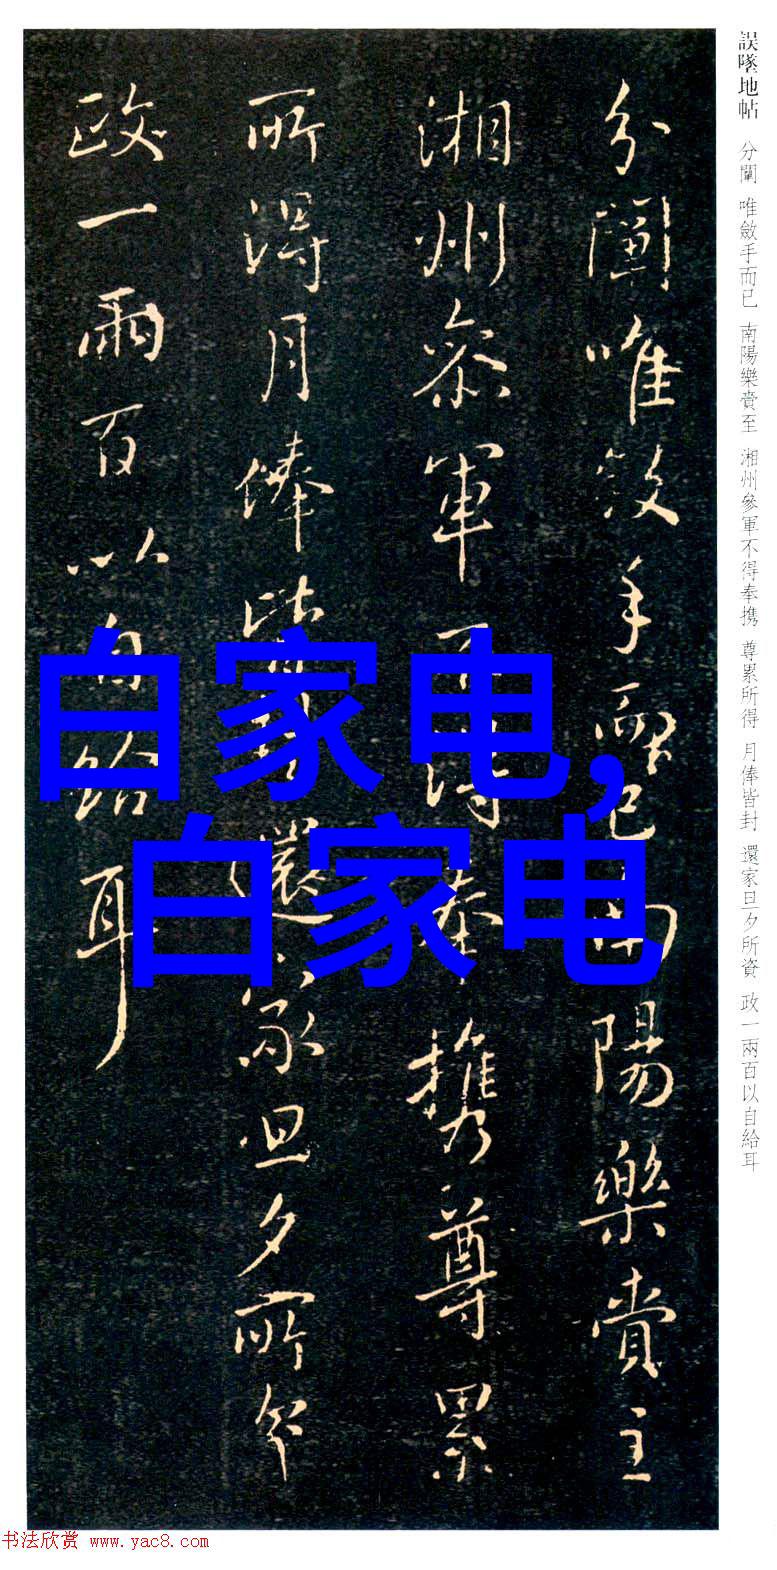 誤墜地帖 分 唯斂手而已 南陽樂至 湘州參軍不得奉携 尊累所得 月俸皆封 還家旦夕所資 政一兩百以自給耳
分唯斂手而已南陽樂至
湘州參軍不得奉携尊累
所得月俸皆封還家旦夕所資
政一兩百以自給耳
白家电,
白家电
书法欣赏 www.yac8.com